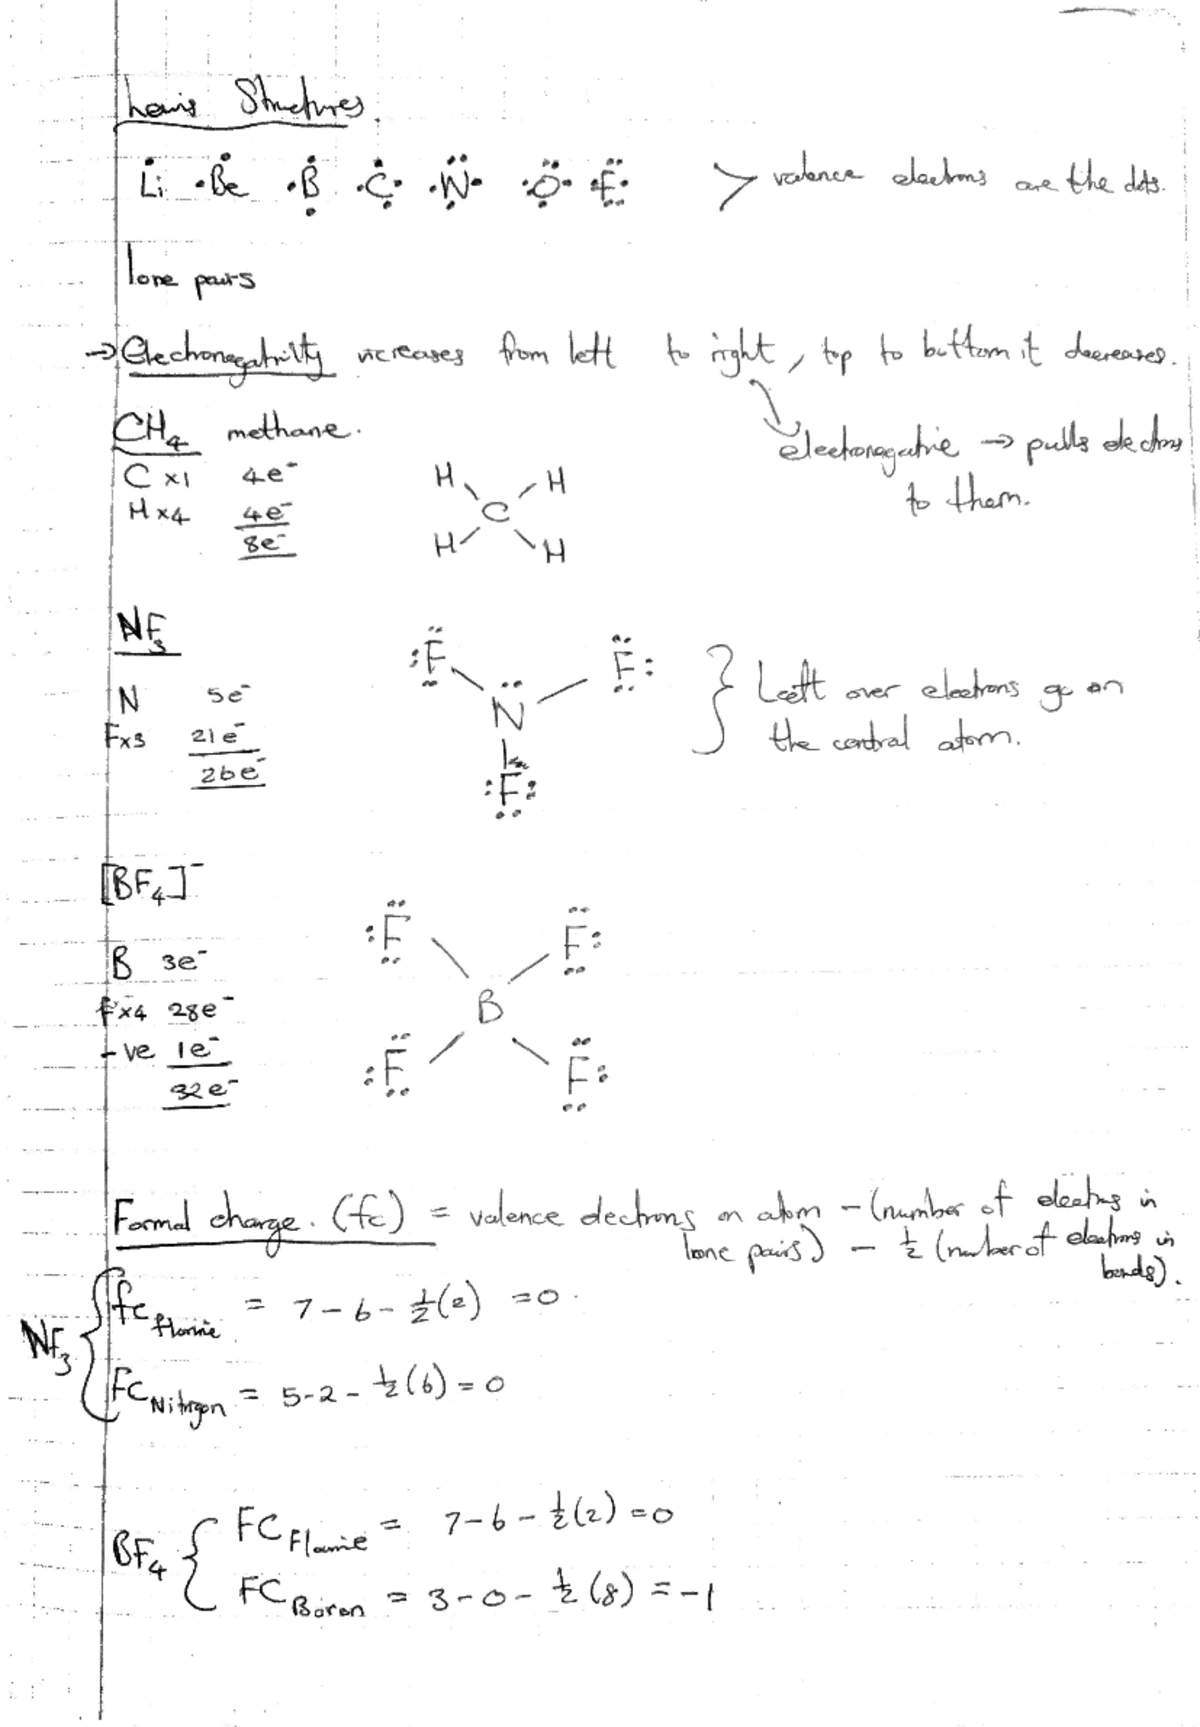 Lewis Structures.
Li Be B C N O F > valence electrons are the dots.
lone pairs
→ Electronegativity increases from left to right, top to bottom it decreases.
electronegative → pulls electrons to them.
CH₄ methane.
C x1 4e⁻
H x4 4e⁻
8e⁻
H H
C
H H
NF₃
N 5e⁻
F x3 21e⁻
26e⁻
F F
N
F
} Left over electrons go on
the central atom.
[BF₄]⁻
B 3e⁻
F x4 28e⁻
-ve 1e⁻
32e⁻
F F
B
F F
Formal charge. (fc) = valence electrons on atom - (number of electrons in
lone pairs) - ½ (number of electrons in
bonds).
NF₃ { fc fluorine = 7 - 6 - ½(2) = 0.
FC Nitrogen = 5 - 2 - ½(6) = 0
BF₄ { FC Fluorine = 7 - 6 - ½(2) = 0
FC Boron = 3 - 0 - ½(8) = -1